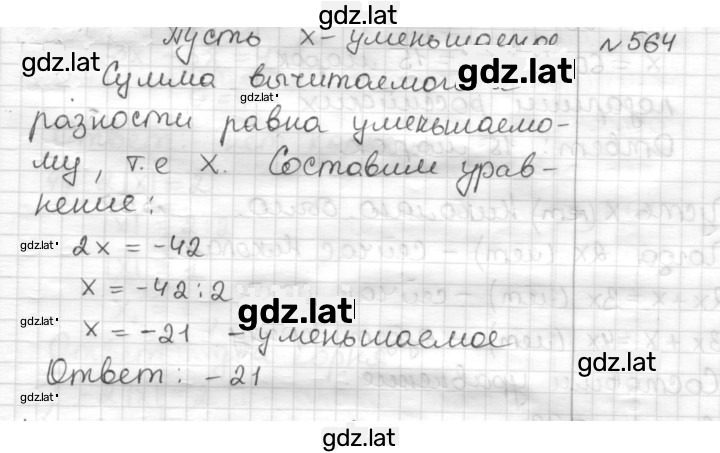 gdz.lat
Пусть x - уменьшаемое №564
gdz.lat
Сумма вычитаемого и gdz.lat
gdz.lat
разности равна уменьшаемо-
му, т.е x. Составим урав-
нение:
gdz.lat 2x = -42
x = -42:2
gdz.lat gdz.lat
x = -21 - уменьшаемое
gdz.lat
Ответ: -21
gdz.lat
gdz.lat